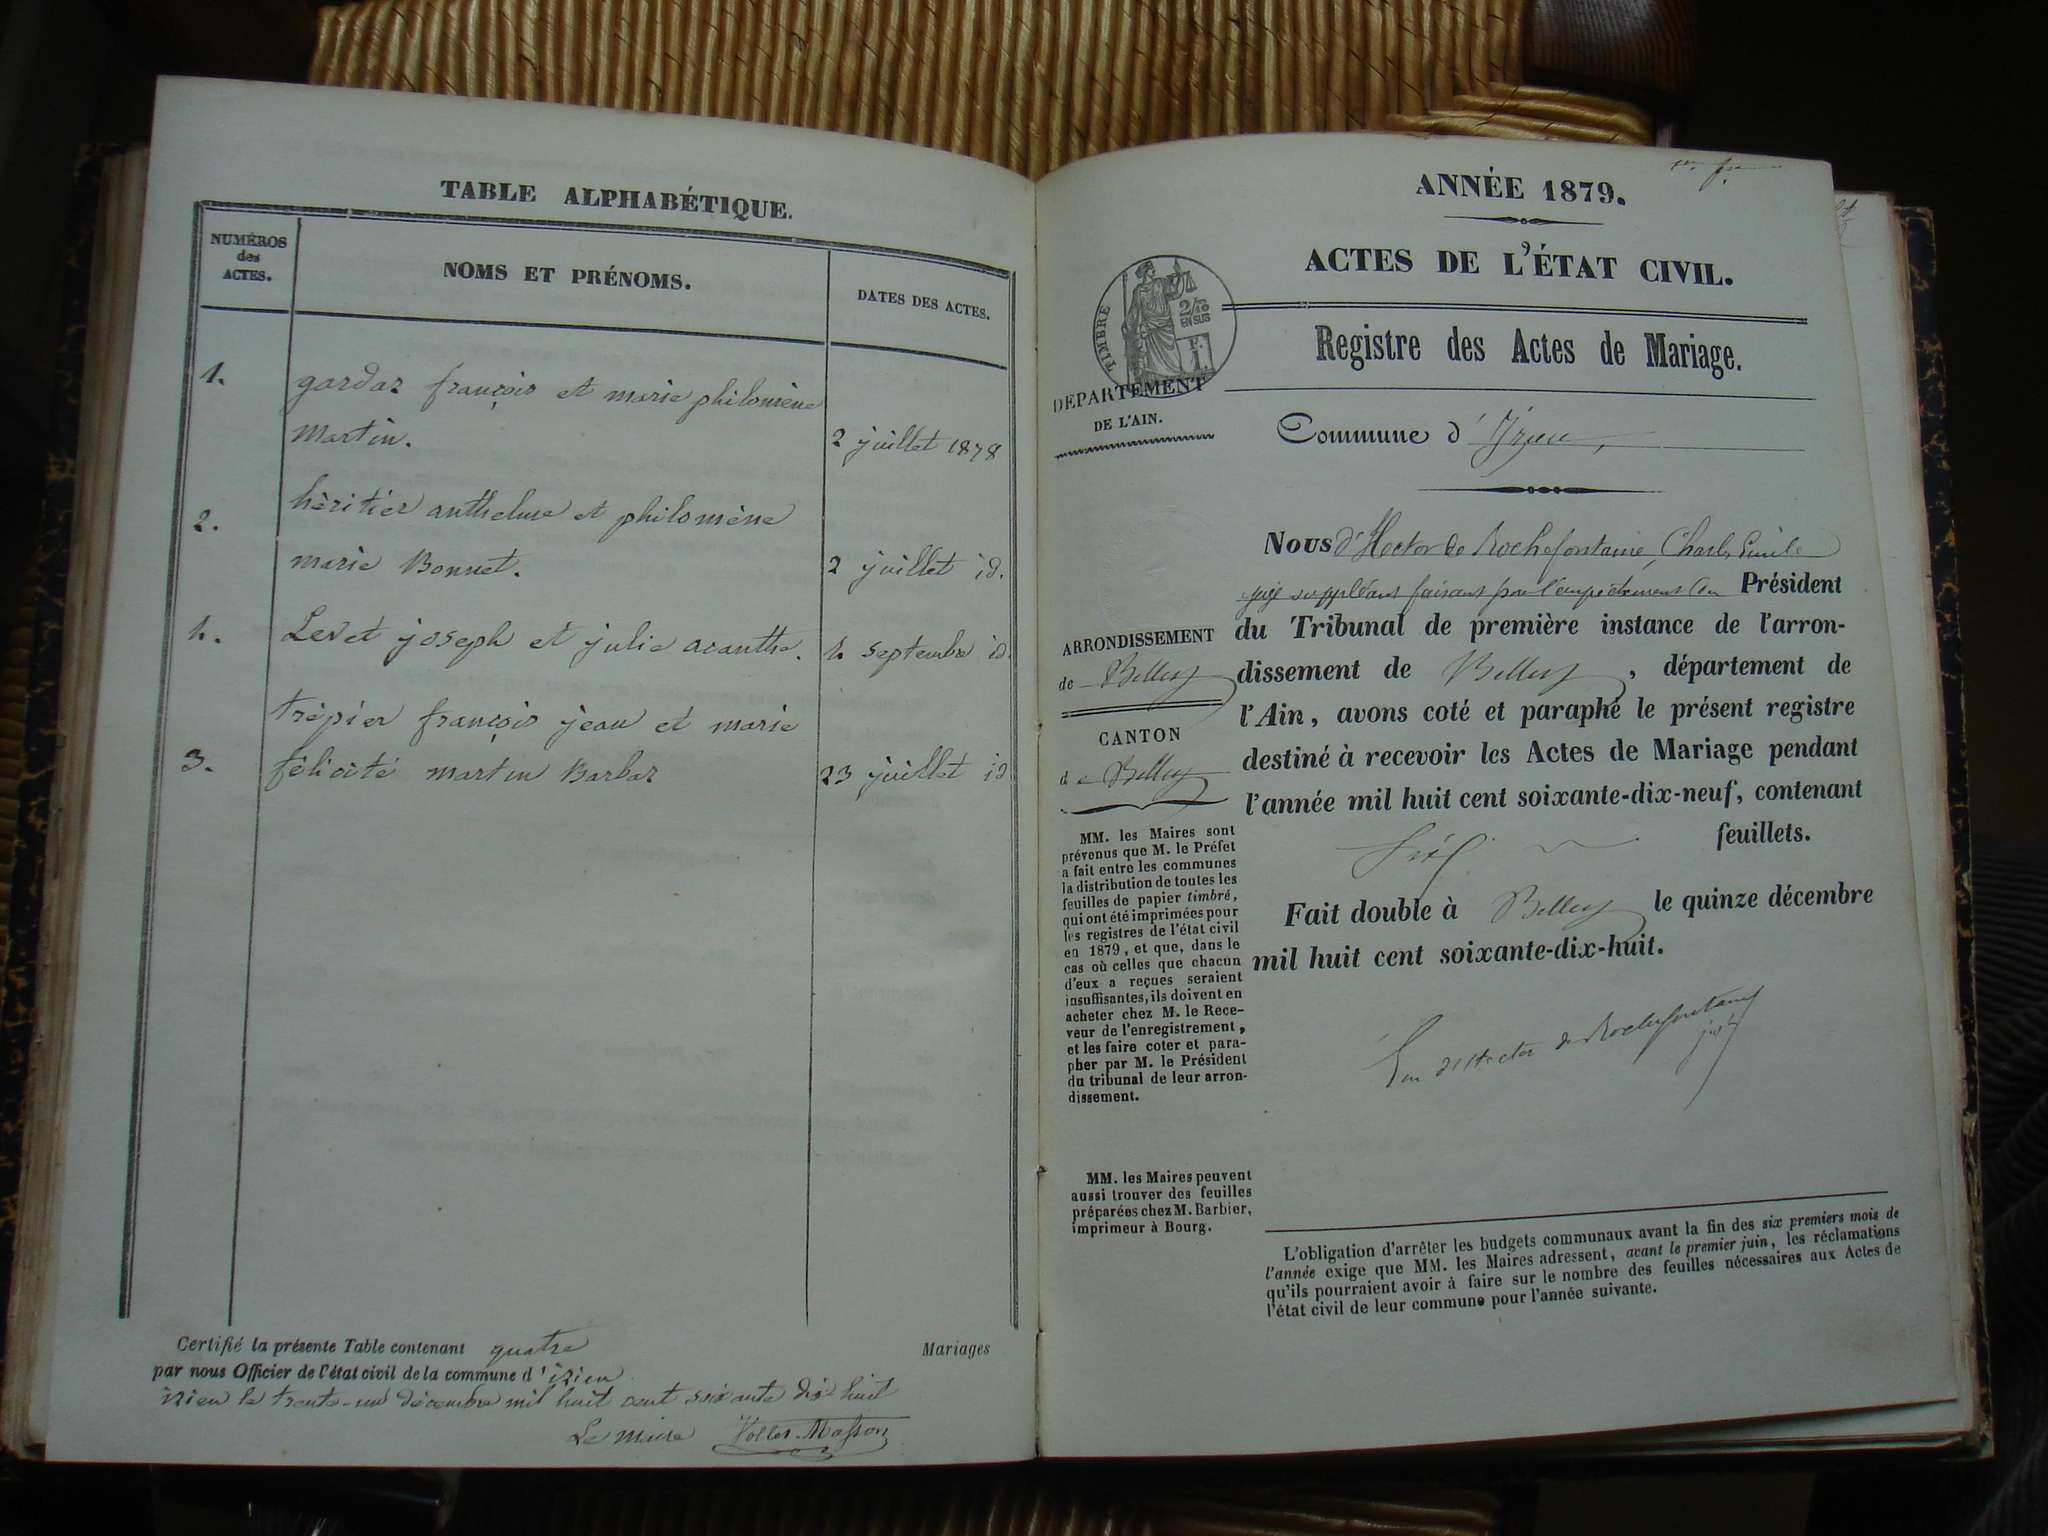 TABLE ALPHABÉTIQUE.
NUMÉROS
des
ACTES.
NOMS ET PRÉNOMS.
DATES DES ACTES.
1. gardaz françois et marie philomène
Martin. 2 juillet 1878
2. héritier anthelme et philomène
marie Bonnet. 2 juillet id.
4. Levet joseph et julie acanthe. 4 septembre id.
trépier françois jean et marie
3. félicité martin Barbaz 23 juillet id
Certifié la présente Table contenant quatre Mariages
par nous Officier de l'état civil de la commune d'izieu
izieu le trente-un décembre mil huit cent soixante dix huit
Le maire
ANNÉE 1879.
ACTES DE L'ÉTAT CIVIL.
TIMBRE
2/10
EN SUS
Registre des Actes de Mariage.
DÉPARTEMENT
DE L'AIN.
Commune d'Izieu
Nous d'Hector de Rochefontaine, Charles Emile
juge suppléant faisant pour l'empêchement du Président
du Tribunal de première instance de l'arron-
dissement de Belley, département de
l'Ain, avons coté et paraphé le présent registre
destiné à recevoir les Actes de Mariage pendant
l'année mil huit cent soixante-dix-neuf, contenant
feuillets.
Fait double à Belley le quinze décembre
mil huit cent soixante-dix-huit.
d'Hector de Rochefontaine
ARRONDISSEMENT
de Belley
CANTON
de Belley
MM. les Maires sont
prévenus que M. le Préfet
a fait entre les communes
la distribution de toutes les
feuilles de papier timbré,
qui ont été imprimées pour
les registres de l'état civil
en 1879, et que, dans le
cas où celles que chacun
d'eux a reçues seraient
insuffisantes, ils doivent en
acheter chez M. le Rece-
veur de l'enregistrement,
et les faire coter et para-
pher par M. le Président
du tribunal de leur arron-
dissement.
MM. les Maires peuvent
aussi trouver des feuilles
préparées chez M. Barbier,
imprimeur à Bourg.
L'obligation d'arrêter les budgets communaux avant la fin des six premiers mois de
l'année exige que MM. les Maires adressent, avant le premier juin, les réclamations
qu'ils pourraient avoir à faire sur le nombre des feuilles nécessaires aux Actes de
l'état civil de leur commune pour l'année suivante.